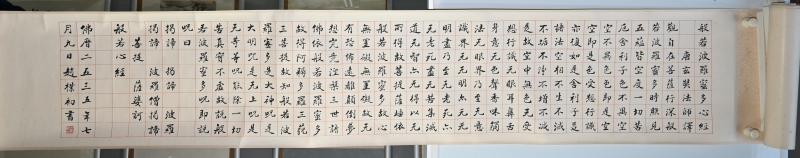 般若波羅蜜多心經
唐玄奘法師譯
觀自在菩薩行深般
若波羅蜜多時照見
五蘊皆空度一切苦
厄舍利子色不異空
空不異色色即是空
空即是色受想行識
亦復如是舍利子是
諸法空相不生不滅
不垢不淨不增不減
是故空中无色无受
想行識无眼耳鼻舌
身意无色聲香味觸
法无眼界乃至无意
識界无无明亦无无
明盡乃至无老死亦
无老死盡无苦集滅
道无智亦无得以无
所得故菩提薩埵依
般若波羅蜜多故心
无罣礙无罣礙故无
有恐怖遠離顛倒夢
想究竟涅槃三世諸
佛依般若波羅蜜多
故得阿耨多羅三藐
三菩提故知般若波
羅蜜多是大神咒是
大明咒是无上咒是
无等等咒能除一切
苦真實不虛故說般
若波羅蜜多咒即說
咒曰
揭諦 揭諦 波羅
揭諦 波羅僧揭諦
菩提 薩婆訶
般若心經
佛曆二五三五年七
月九日趙樸初書